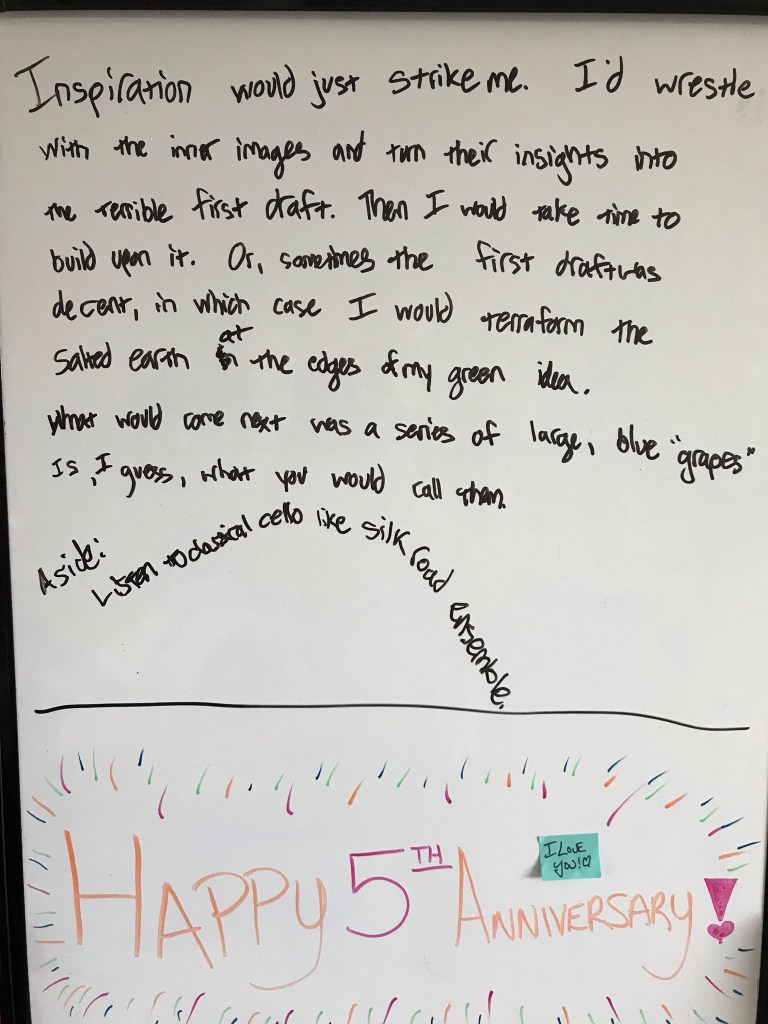 Inspiration would just strike me. I'd wrestle
with the inner images and turn their insights into
the terrible first draft. Then I would take time to
build upon it. Or, sometimes the first draft was
decent, in which case I would terraform the
salted earth at the edges of my green idea.
What would come next was a series of large, blue "grapes"
Is, I guess, what you would call them.
Aside:
Listen to classical cello like silk road ensemble.
HAPPY 5TH ANNIVERSARY!
I LOVE
YOU!♡